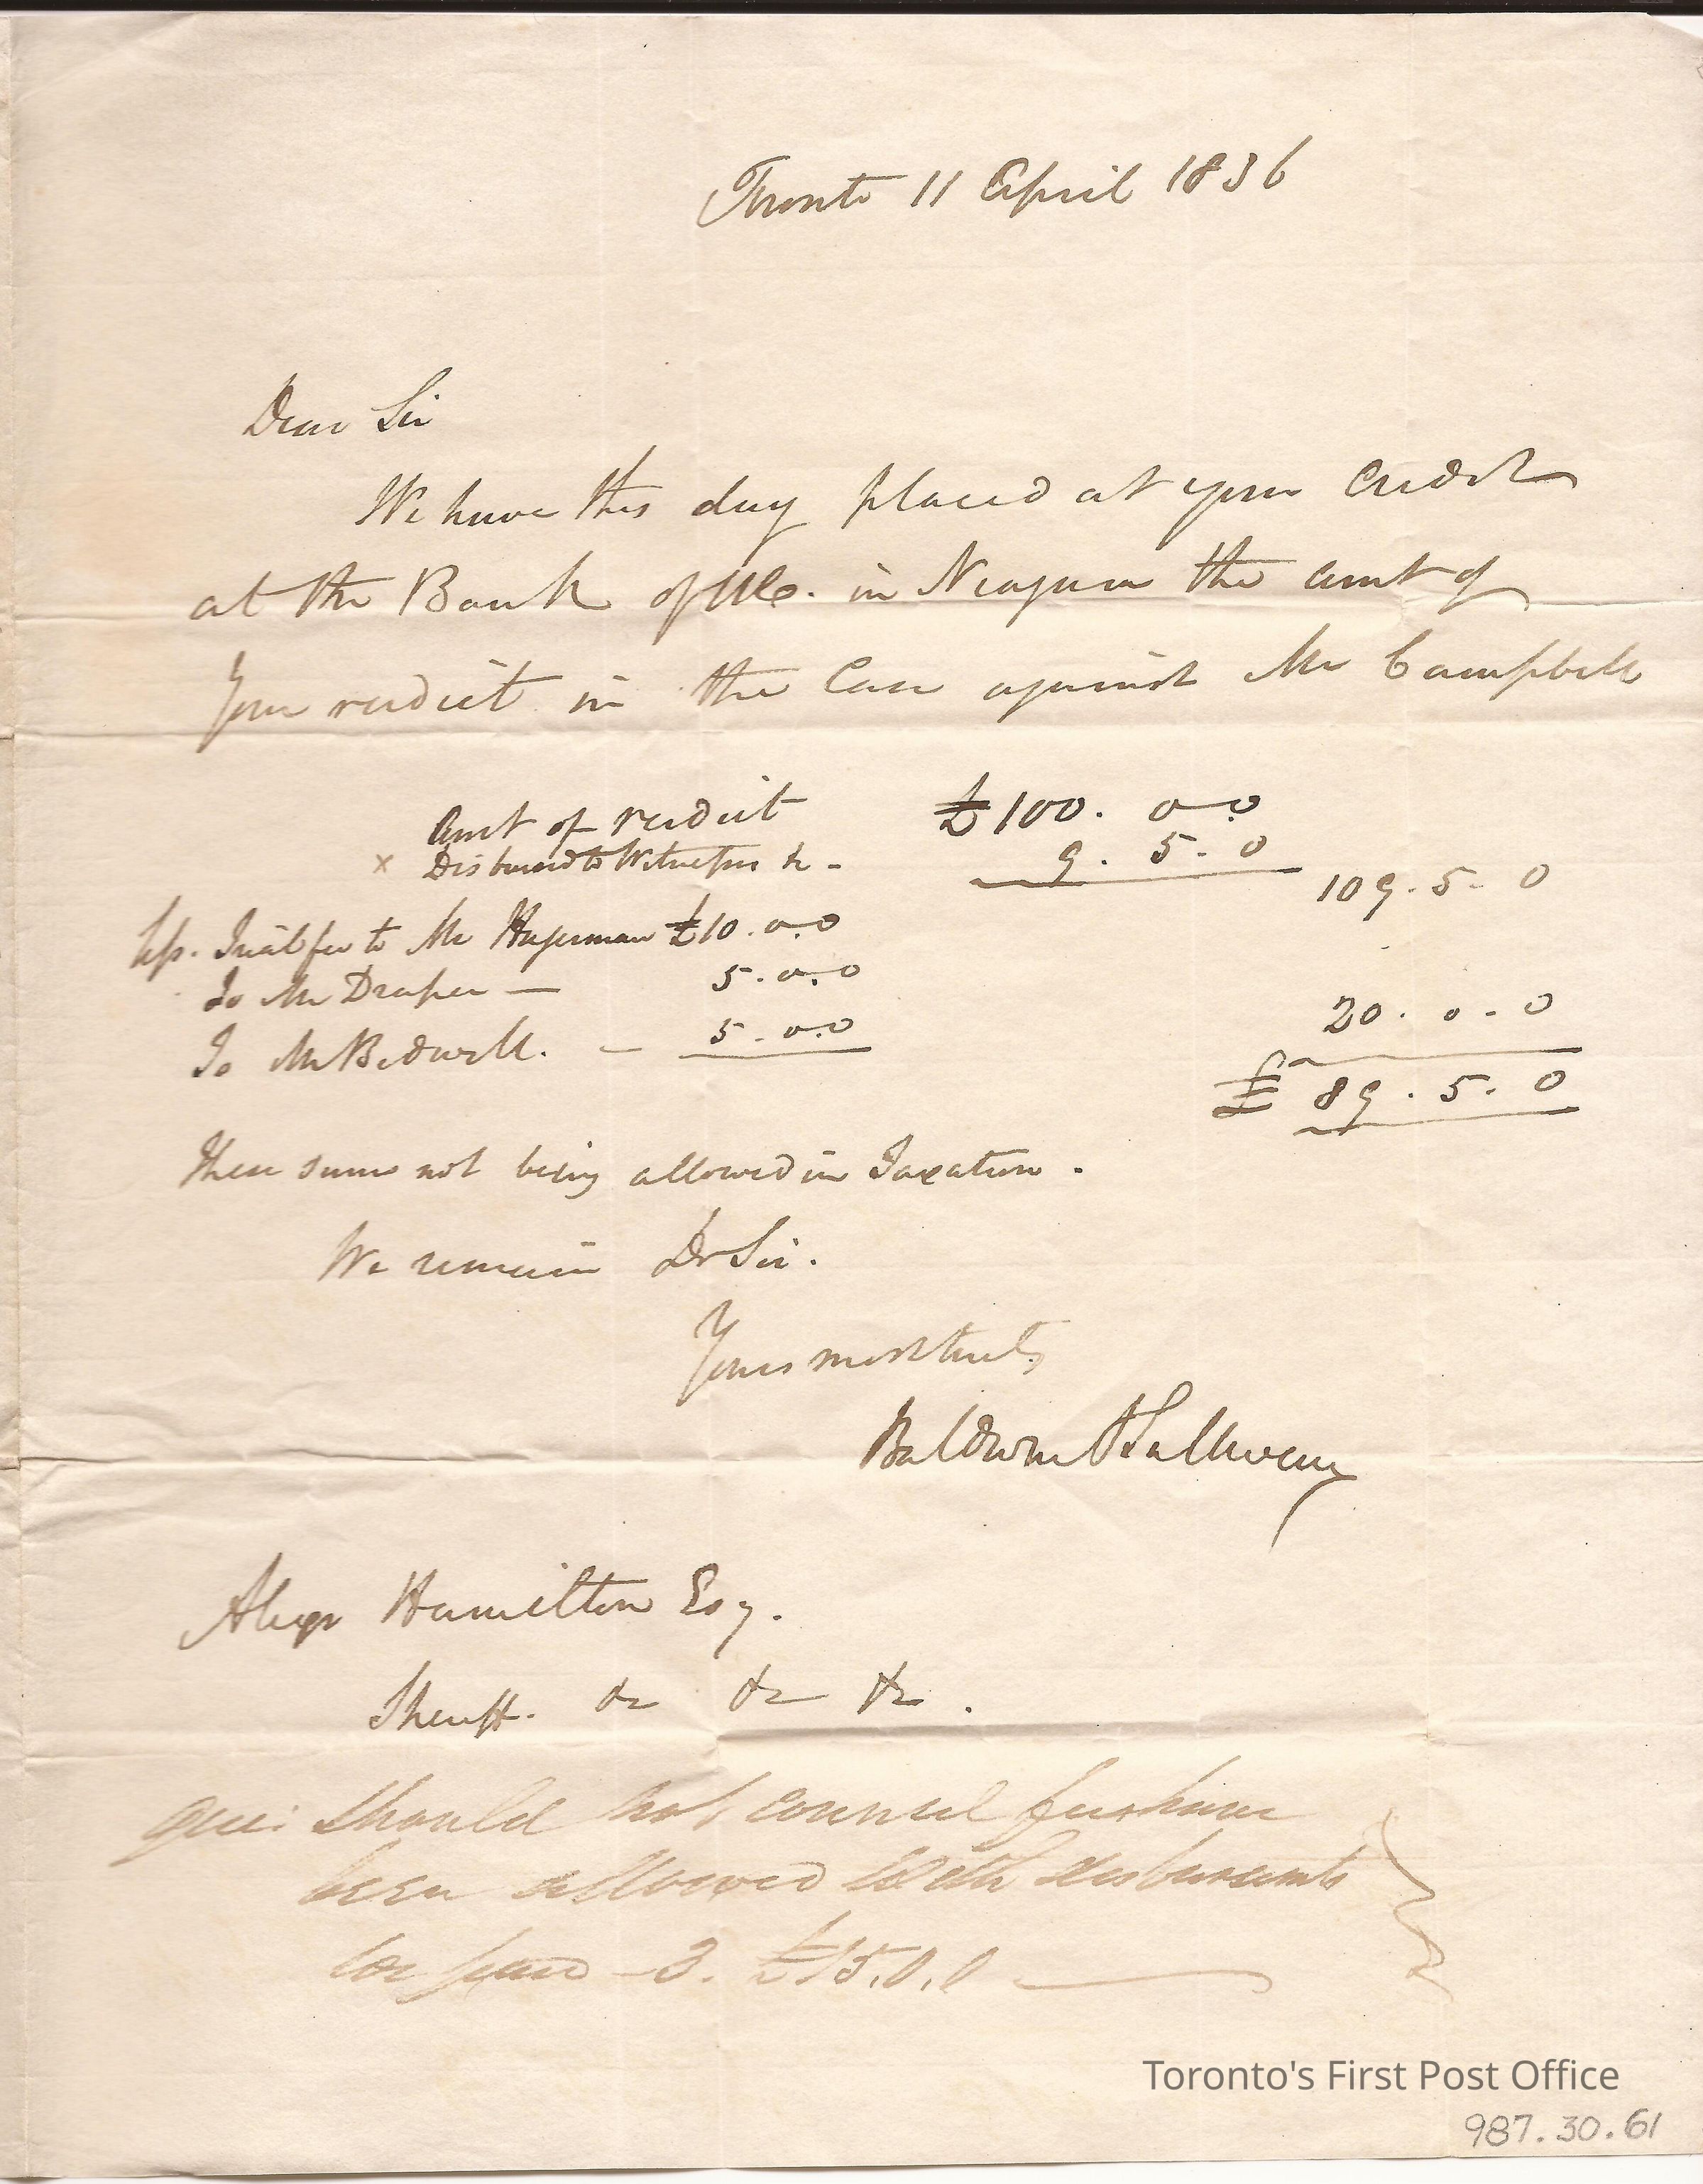 Toronto 11 April 1836
Dear Sir
We have this day placed at your credit
at the Bank of U.C. in Niagara the amt of
Your verdict in the Case against Mr Campbell
Amt of verdict £100. 0.0
x Disbursed to Witnesses &c - 9. 5. 0 109. 5. 0
Less. Trial fee to Mr Hagerman £10. 0.0
To Mr Draper — 5. 0.0 20. 0. 0
To Mr Bidwell. — 5. 0.0
£ 89. 5. 0
These sums not being allowed in Taxation.
We remain Dr Sir.
Yours most truly
Baldwin & Sullivan
Alexr Hamilton Esq.
Sheriff. &c &c &c.
Que: Should not counsel fees have
been allowed with disbursemts
£15.0.0
Toronto's First Post Office
987.30.61